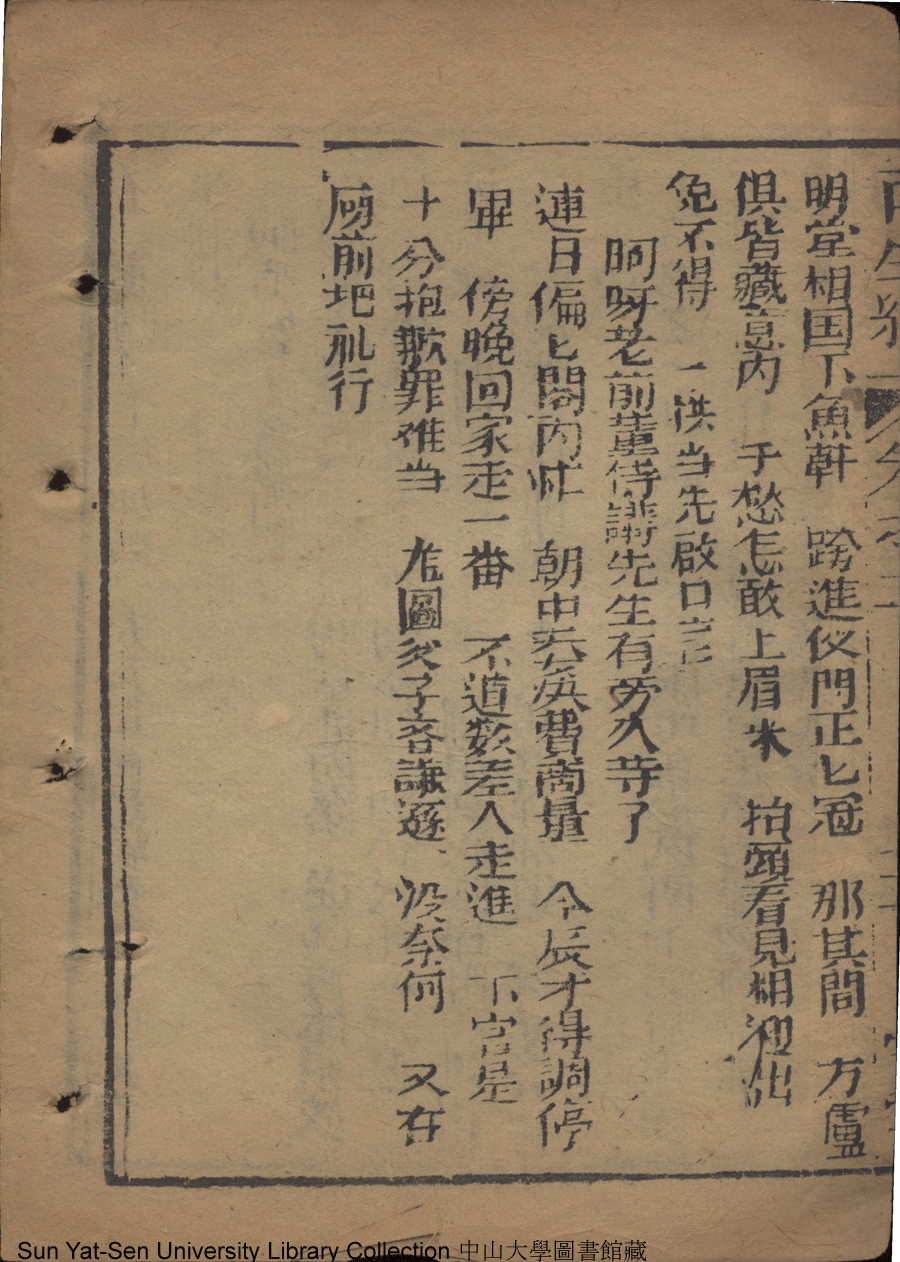 明堂相国下魚軒 跨進仪門正匕冠 那其間 方盧
俱皆藏意内 于愁怎敢上眉 拍頭看見相迎出
免不得 一供当先啟口言
呵呀老前董侍講先生有旁久等了
連日偏匕閣内忙 朝中 費商量 今辰才得調停
畢 傍晚回家走一番 不道数差人走進 下官是
十分抱歉罪难当 圖父子吝謙遜 没奈何 又在
廟前把礼行
Sun Yat-Sen University Library Collection 中山大學圖書館藏